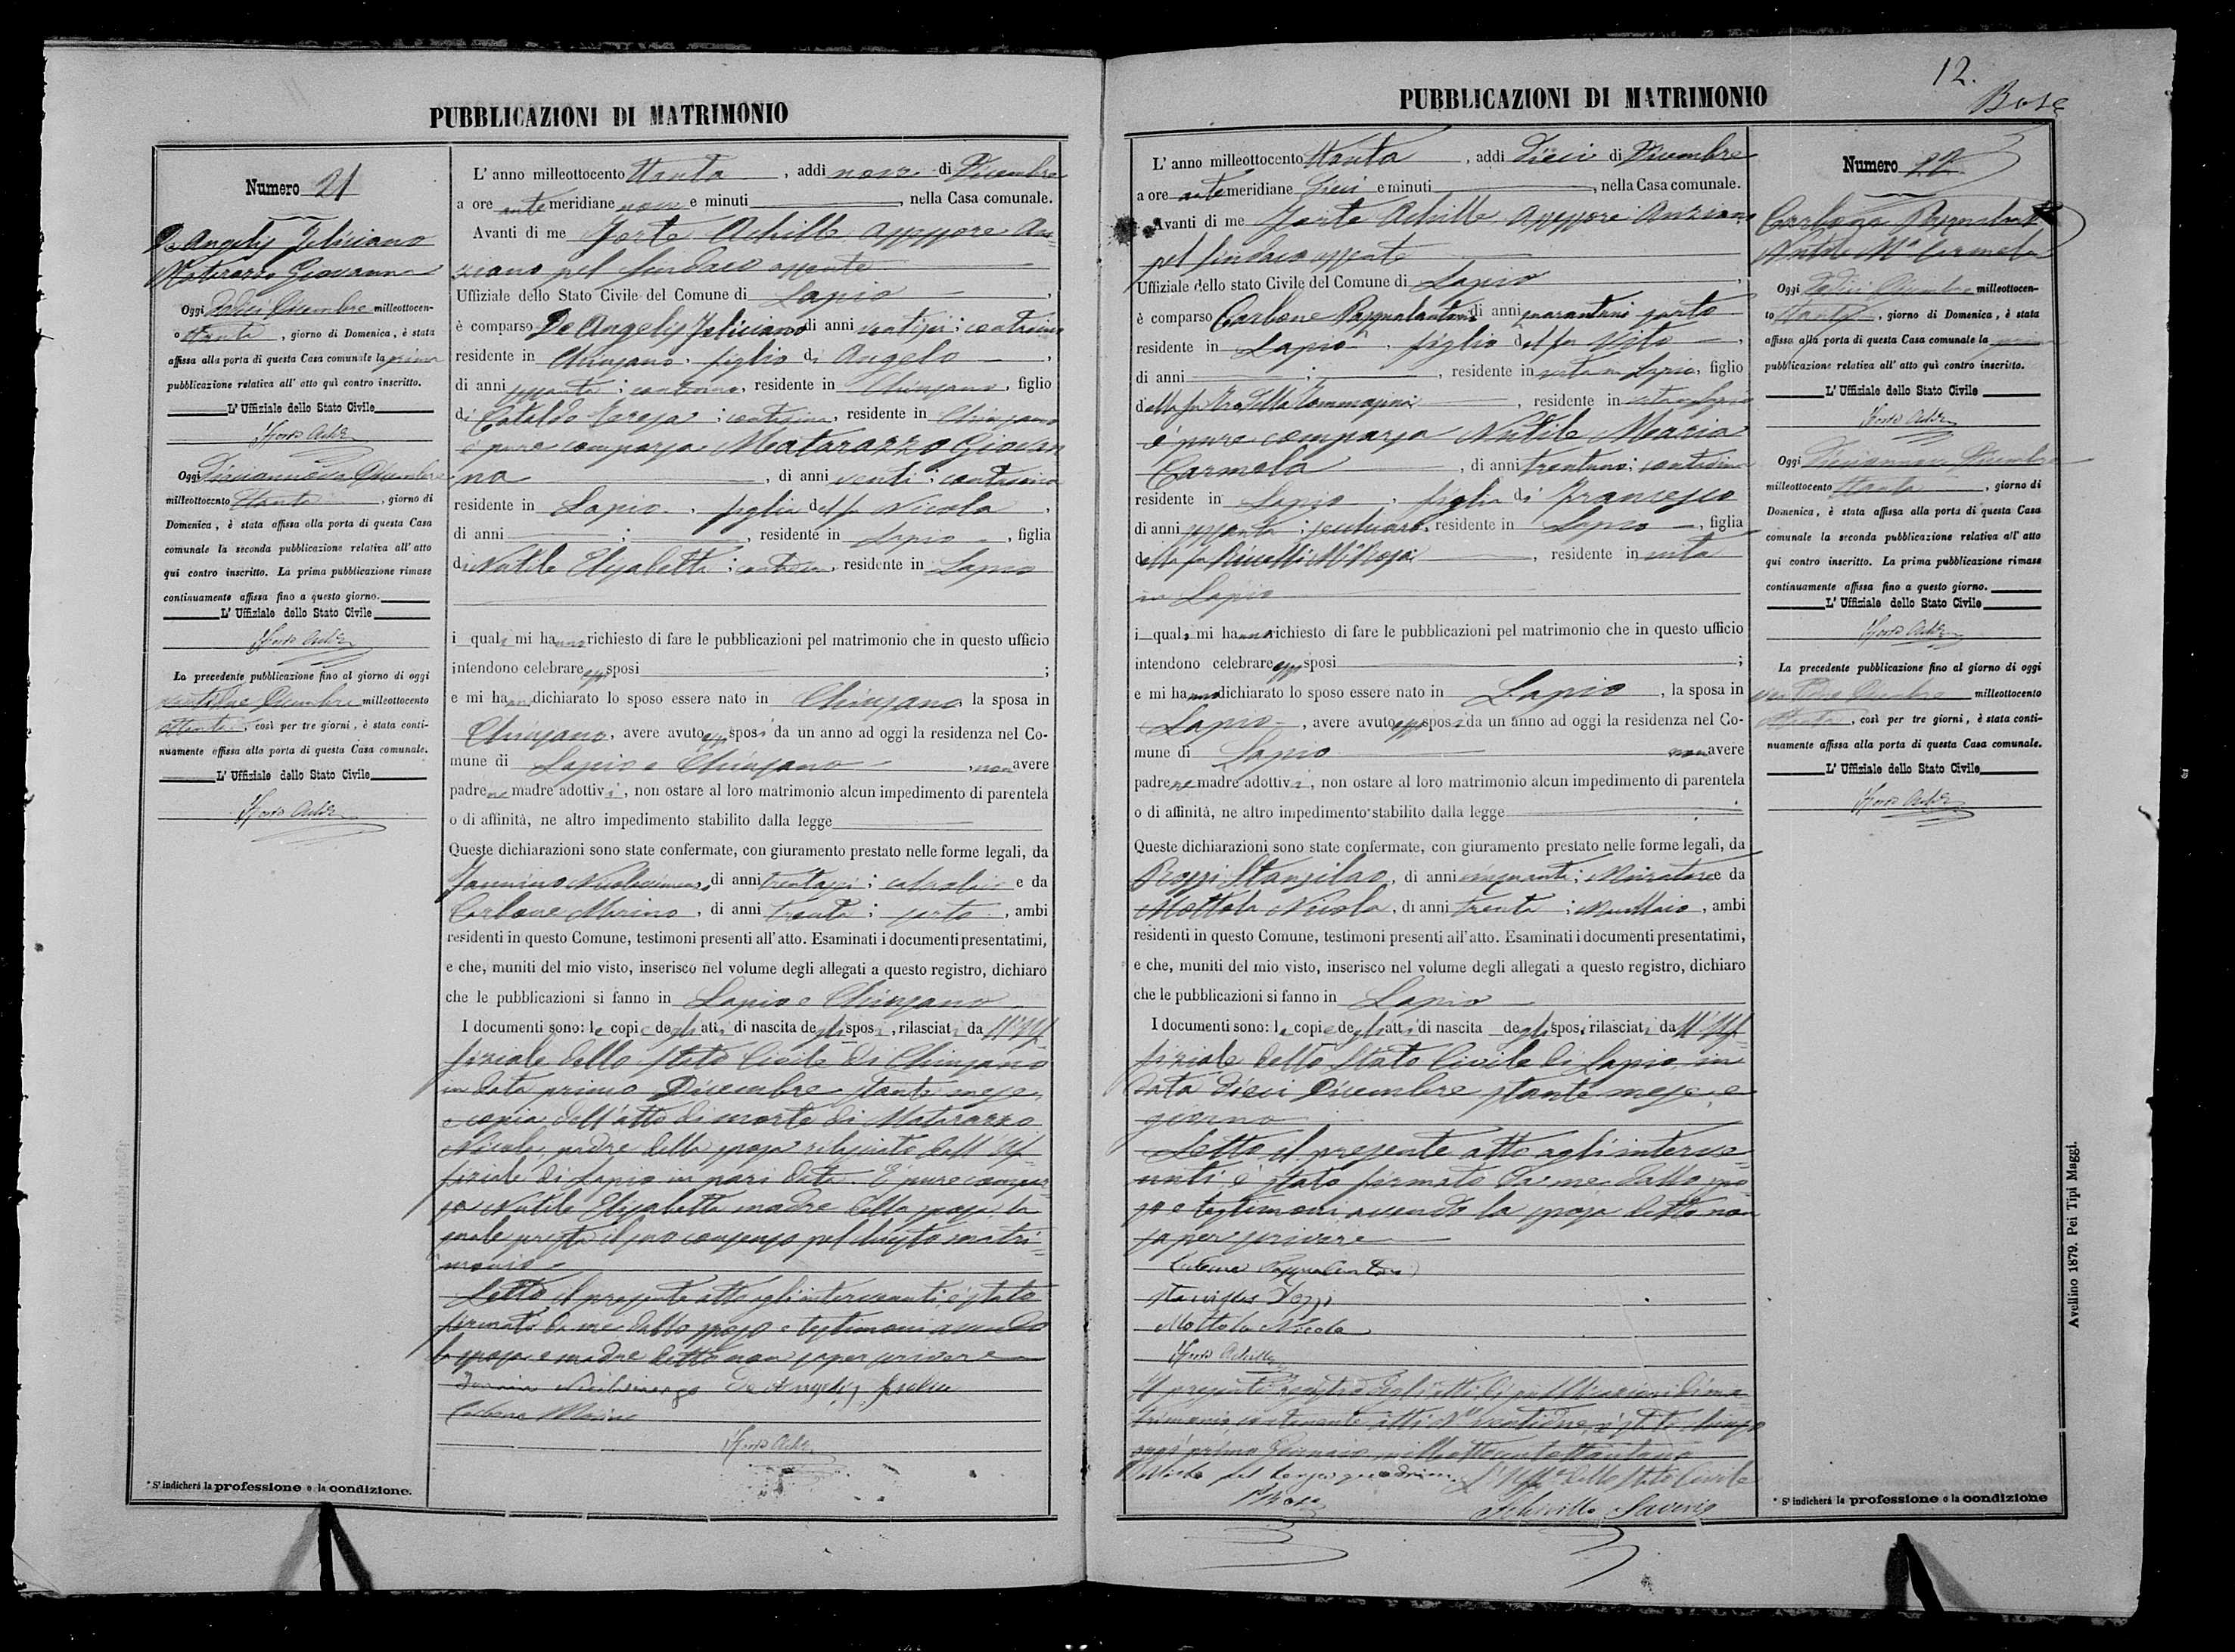 PUBBLICAZIONI DI MATRIMONIO
Numero 21
De Angelis Feliciano
Matarazzo Giovanna
Oggi dodici Dicembre milleottocen-
o ttanta, giorno di Domenica, è stata
affissa alla porta di questa Casa comunale la prima
pubblicazione relativa all' atto quì contro inscritto.
L' Uffiziale dello Stato Civile
Forte Achille
Oggi Diciannove Dicembre
milleottocento ttanta, giorno di
Domenica, è stata affissa alla porta di questa Casa
comunale la seconda pubblicazione relativa all' atto
qui contro inscritto. La prima pubblicazione rimase
continuamente affissa fino a questo giorno.
L' Uffiziale dello Stato Civile
Forte Achille
La precedente pubblicazione fino al giorno di oggi
ventidue Dicembre milleottocento
ottanta, così per tre giorni, è stata conti-
nuamente affissa alla porta di questa Casa comunale.
L' Uffiziale dello Stato Civile
Forte Achille
* S' indicherà la professione o la condizione.
L' anno milleottocento ttanta, addi nove di Dicembre
a ore antemeridiane nove e minuti , nella Casa comunale.
Avanti di me Forte Achille Assessore An-
ziano pel Sindaco assente
Uffiziale dello Stato Civile del Comune di Lapio
è comparso De Angelis Feliciano di anni ventisei; contadino
residente in Chiusano, figlio di Angelo
di anni sessanta; contadino, residente in Chiusano, figlio
di Cataldo Teresa; contadina, residente in Chiusano
è pure comparsa Matarazzo Giovan
na, di anni venti; contadina
residente in Lapio, figlia del fu Nicola
di anni ; , residente in Lapio, figlia
di Natile Elisabetta; contadina, residente in Lapio
i quali mi hanno richiesto di fare le pubblicazioni pel matrimonio che in questo ufficio
intendono celebrare essi sposi ;
e mi hanno dichiarato lo sposo essere nato in Chiusano, la sposa in
Chiusano, avere avuto essi sposi da un anno ad oggi la residenza nel Co-
mune di Lapio e Chiusano, non avere
padre ne madre adottivi, non ostare al loro matrimonio alcun impedimento di parentela
o di affinità, ne altro impedimento stabilito dalla legge
Queste dichiarazioni sono state confermate, con giuramento prestato nelle forme legali, da
di anni trentasei; e da
Carbone Marino, di anni trenta; sarto, ambi
residenti in questo Comune, testimoni presenti all' atto. Esaminati i documenti presentatimi,
e che, muniti del mio visto, inserisco nel volume degli allegati a questo registro, dichiaro
che le pubblicazioni si fanno in Lapio e Chiusano
I documenti sono: le copie degli atti di nascita degli sposi, rilasciati da ll' Uf-
fiziale dello Stato Civile di Chiusano
in data primo Dicembre stante mese,
e copia dell'atto di morte di Matarazzo
Nicola, padre della sposa rilasciato dall' Uf-
fiziale di Lapio in pari data. È pure compar-
sa Natile Elisabetta madre della sposa, la
quale presta il suo consenso pel chiesto matri-
monio
Letto il presente atto agli intervenuti è stato
firmato da me dallo sposo e testimoni avendo
la sposa e madre detto non saper scrivere
De Angelis
Carbone Marino
Forte Achille
12.
PUBBLICAZIONI DI MATRIMONIO
L' anno milleottocento ttanta, addi dieci di Dicembre
a ore antemeridiane dieci e minuti , nella Casa comunale.
Avanti di me Forte Achille Assessore Anziano
pel Sindaco assente
Uffiziale dello stato Civile del Comune di Lapio
è comparso Carbone Pasqualantonio di anni sarto
residente in Lapio, figlio del fu Vito
di anni ; , residente in vita in Lapio, figlio
della fu Tommasina, residente in vita in Lapio
è pure comparsa Natile Maria
Carmela, di anni trentuno; contadina
residente in Lapio, figlia di Francesco
di anni sessanta; , residente in Lapio, figlia
della fu Mª Rosa, residente in vita
in Lapio
i quali mi hanno richiesto di fare le pubblicazioni pel matrimonio che in questo ufficio
intendono celebrare essi sposi ;
e mi hanno dichiarato lo sposo essere nato in Lapio, la sposa in
Lapio, avere avuto essi sposi da un anno ad oggi la residenza nel Co-
mune di Lapio non avere
padre ne madre adottivi, non ostare al loro matrimonio alcun impedimento di parentela
o di affinità, ne altro impedimento stabilito dalla legge
Queste dichiarazioni sono state confermate, con giuramento prestato nelle forme legali, da
Stanislao, di anni cinquanta; Muratore e da
Mottola Nicola, di anni trenta; , ambi
residenti in questo Comune, testimoni presenti all' atto. Esaminati i documenti presentatimi,
e che, muniti del mio visto, inserisco nel volume degli allegati a questo registro, dichiaro
che le pubblicazioni si fanno in Lapio
I documenti sono: le copie degli atti di nascita degli sposi rilasciati da ll' Uf-
fiziale dello Stato Civile di Lapio in
data dieci Dicembre stante mese, e
giorno
Letto il presente atto agli interve-
nuti è stato firmato da me dallo spo-
so e testimoni avendo la sposa detto non
saper scrivere
Carbone Pasqualantonio
Mottola Nicola
Forte Achille
Il presente registro degli atti di pubblicazioni di ma-
trimonio contenente atti Nº ventidue, è stato chiuso
oggi primo Gennaio milleottocentottantuno
L' Uff.le dello Stato Civile
Saverio
Numero 22
Carbone Pasqualant.
Natile Mª Carmela
Oggi dodici Dicembre milleottocen-
to ttanta, giorno di Domenica, è stata
affissa alla porta di questa Casa comunale la prima
pubblicazione relativa all' atto quì contro inscritto.
L' Uffiziale dello Stato Civile
Forte Achille
Oggi Diciannove Dicembre
milleottocento ttanta, giorno di
Domenica, è stata affissa alla porta di questa Casa
comunale la seconda pubblicazione relativa all' atto
qui contro inscritto. La prima pubblicazione rimase
continuamente affissa fino a questo giorno.
L' Uffiziale dello Stato Civile
Forte Achille
La precedente pubblicazione fino al giorno di oggi
ventidue Dicembre milleottocento
ottanta, così per tre giorni, è stata conti-
nuamente affissa alla porta di questa Casa comunale.
L' Uffiziale dello Stato Civile
Forte Achille
* S' indicherà la professione o la condizione
Avellino 1879. Pei Tipi Maggi.